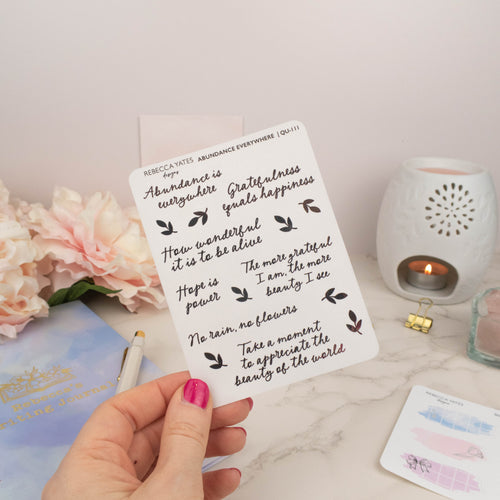 REBECCA YATES
designs
ABUNDANCE EVERYWHERE | QU-111
Abundance is
everywhere
Gratefulness
equals happiness
How wonderful
it is to be alive
Hope is
power
The more grateful
I am, the more
beauty I see
No rain, no flowers
Take a moment
to appreciate the
beauty of the world